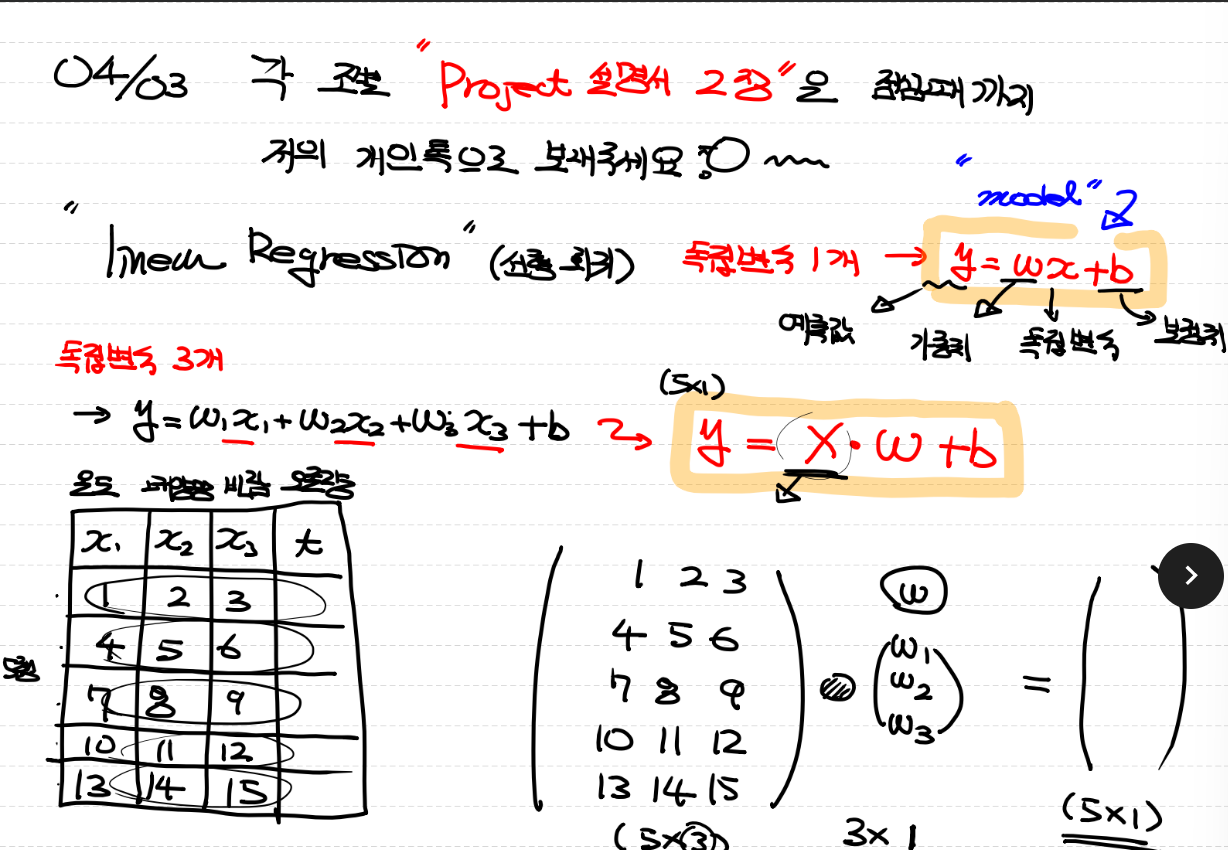 04/03 각 조별 "Project 설명서 2장"을 점심때까지
저의 개인톡으로 보내주세요!O
"model"
"linear Regression" (선형 회귀) 독립변수 1개 → y = wx + b
예측값 가중치 독립변수
독립변수 3개
(5x1)
→ y = w₁x₁ + w₂x₂ + w₃x₃ + b y = X · w + b
온도 태양광 바람 오존량
x₁ x₂ x₃ t
1 2 3
4 5 6
7 8 9
10 11 12
13 14 15
1 2 3
4 5 6
7 8 9
10 11 12
13 14 15
w
w₁
w₂
w₃
=
(5x3) 3x1 (5x1)